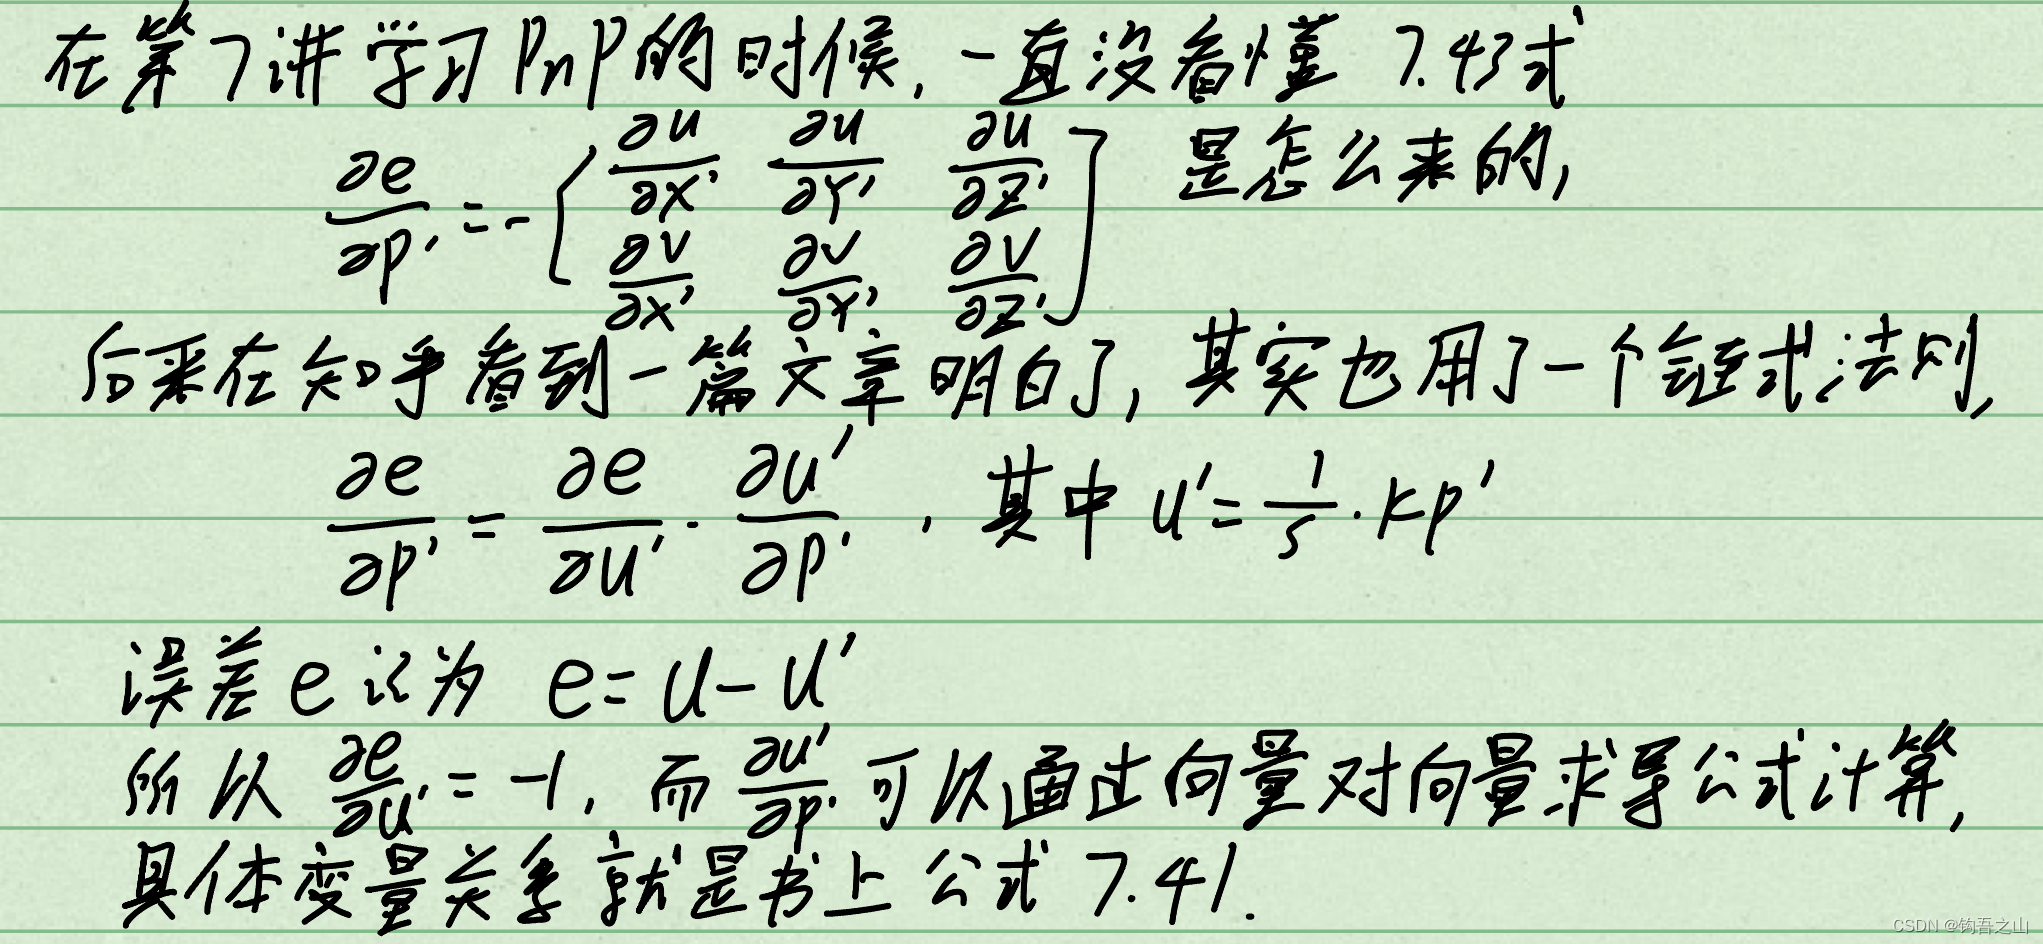 在第7讲学习PnP的时候,一直没看懂 7.43式
∂e/∂p' = -[∂u/∂X' ∂u/∂Y' ∂u/∂Z' ; ∂v/∂X' ∂v/∂Y' ∂v/∂Z'] 是怎么来的,
后来在知乎看到一篇文章明白了,其实也用了一个链式法则,
∂e/∂p' = ∂e/∂u' · ∂u'/∂p' , 其中 u' = 1/s · KP'
误差e记为 e = u - u'
所以 ∂e/∂u' = -1, 而 ∂u'/∂p' 可以通过向量对向量求导公式计算,
具体变量关系就是书上公式 7.41.
CSDN @钩吾之山